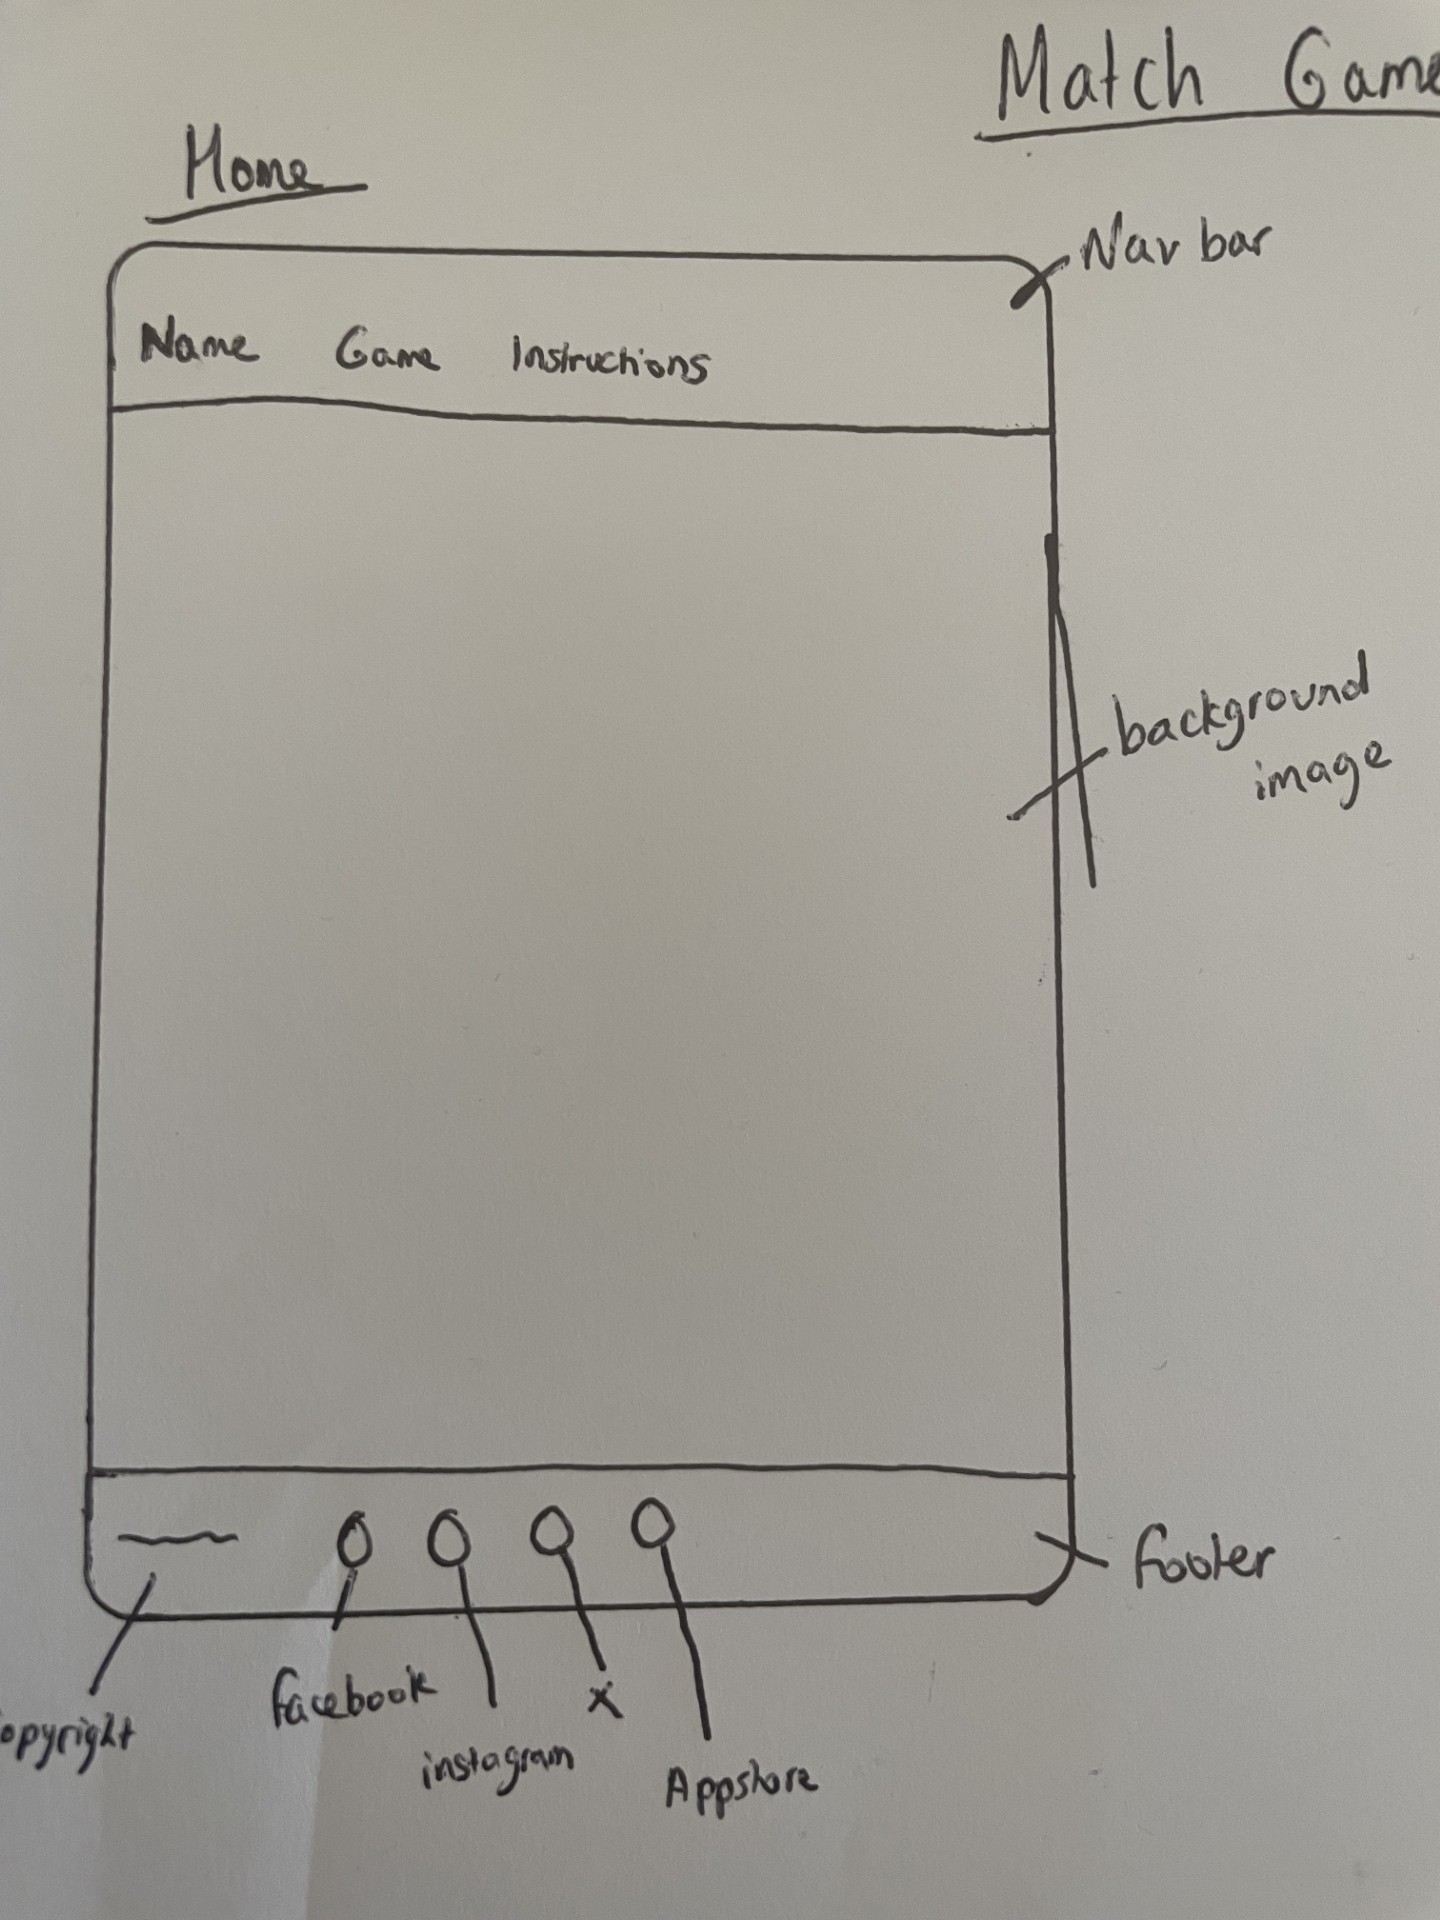 Match Game
Home
Nav bar
Name Game Instructions
background
image
footer
opyright
facebook
instagram
x
Appstore